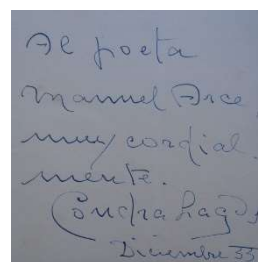 Al poeta
Manuel Arce,
muy cordial.
mente.
Concha Lagos
Diciembre 55